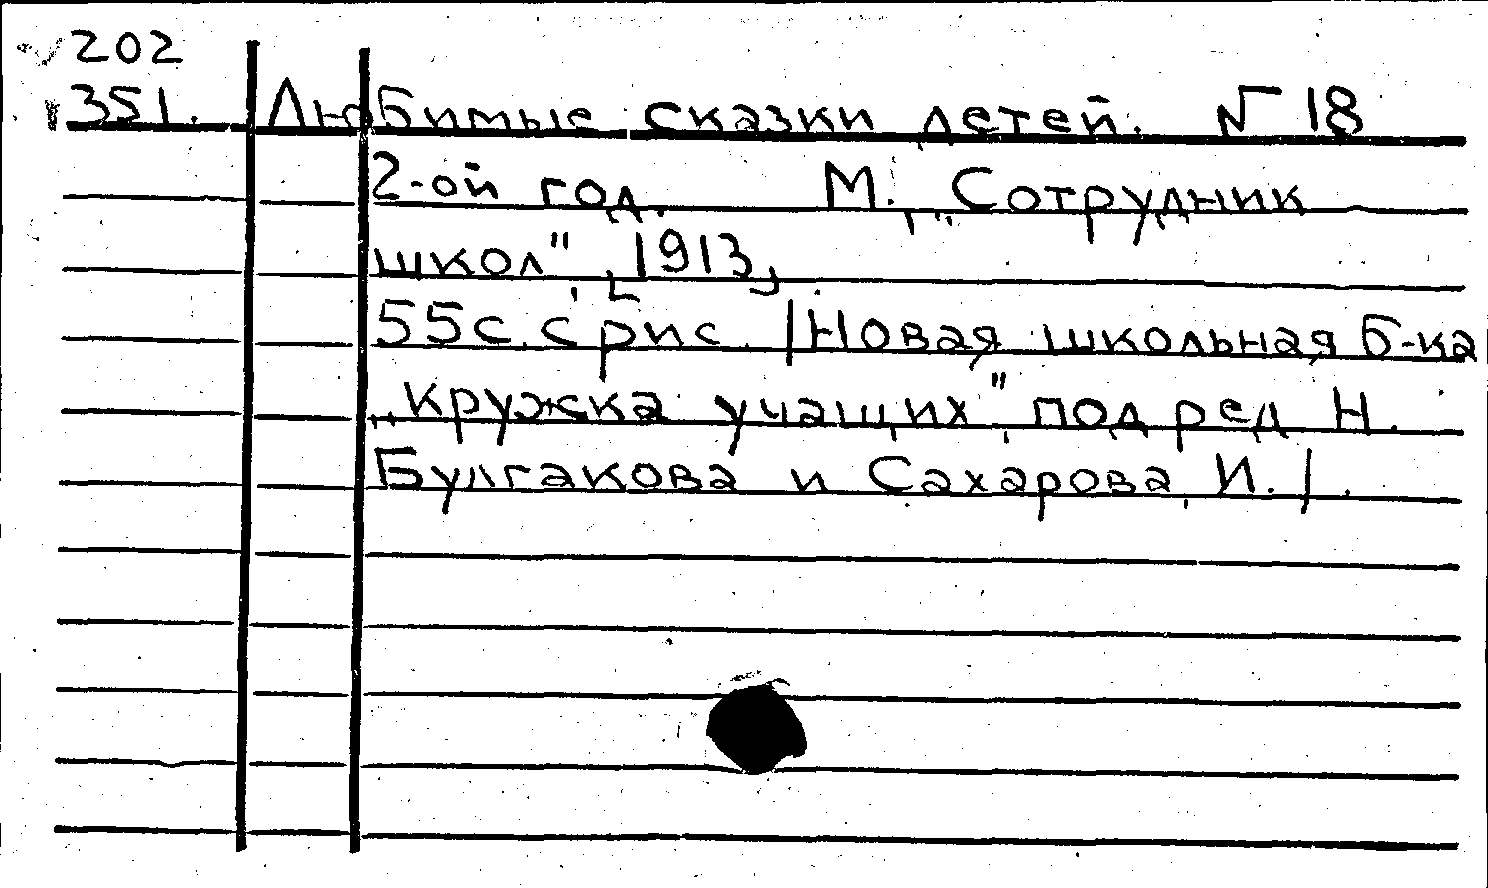 202
351. Любимые сказки детей. № 18
2-ой год. М., „Сотрудник
школ", [1913],
55с. с рис. /Новая школьная б-ка
„Кружка учащих", под ред Н.
Булгакова и Сахарова, И./.